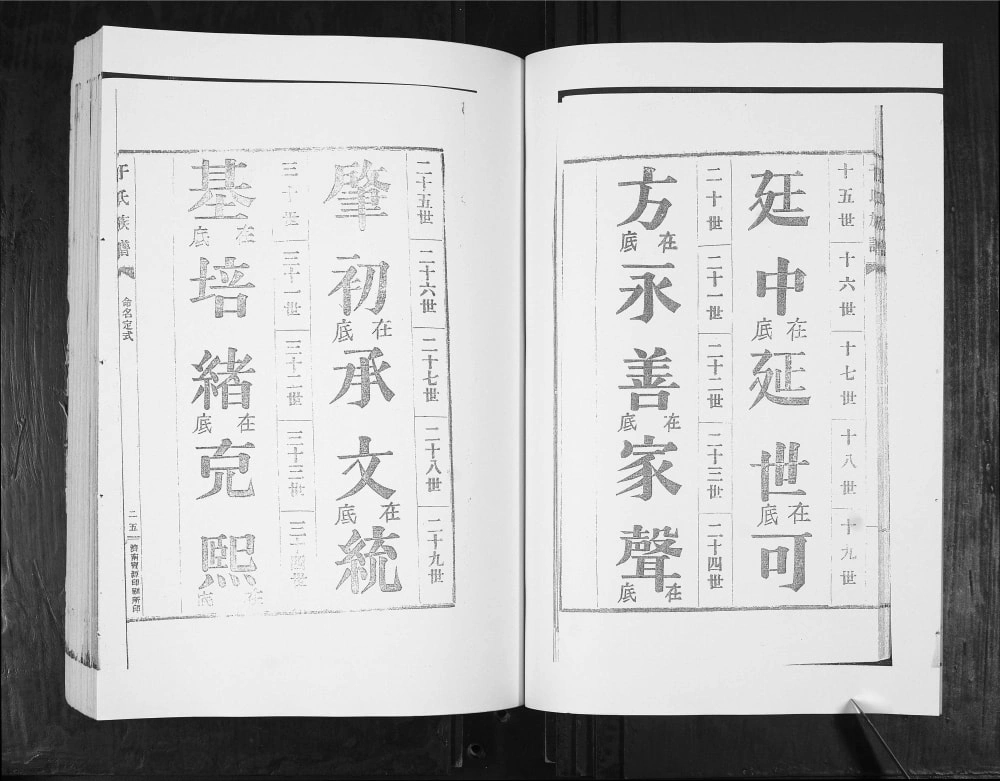 十五世 十六世 十七世 十八世 十九世
廷 中在底 延 世在底 可
二十世 二十一世 二十二世 二十三世 二十四世
方在底 永 善在底 家 聲在底
二十五世 二十六世 二十七世 二十八世 二十九世
肇 初在底 承 文在底 統
三十世 三十一世 三十二世 三十三世 三十四世
基在底 培 緒在底 克 熙在底
于氏族譜
命名定式
二五
濟南 印刷所印